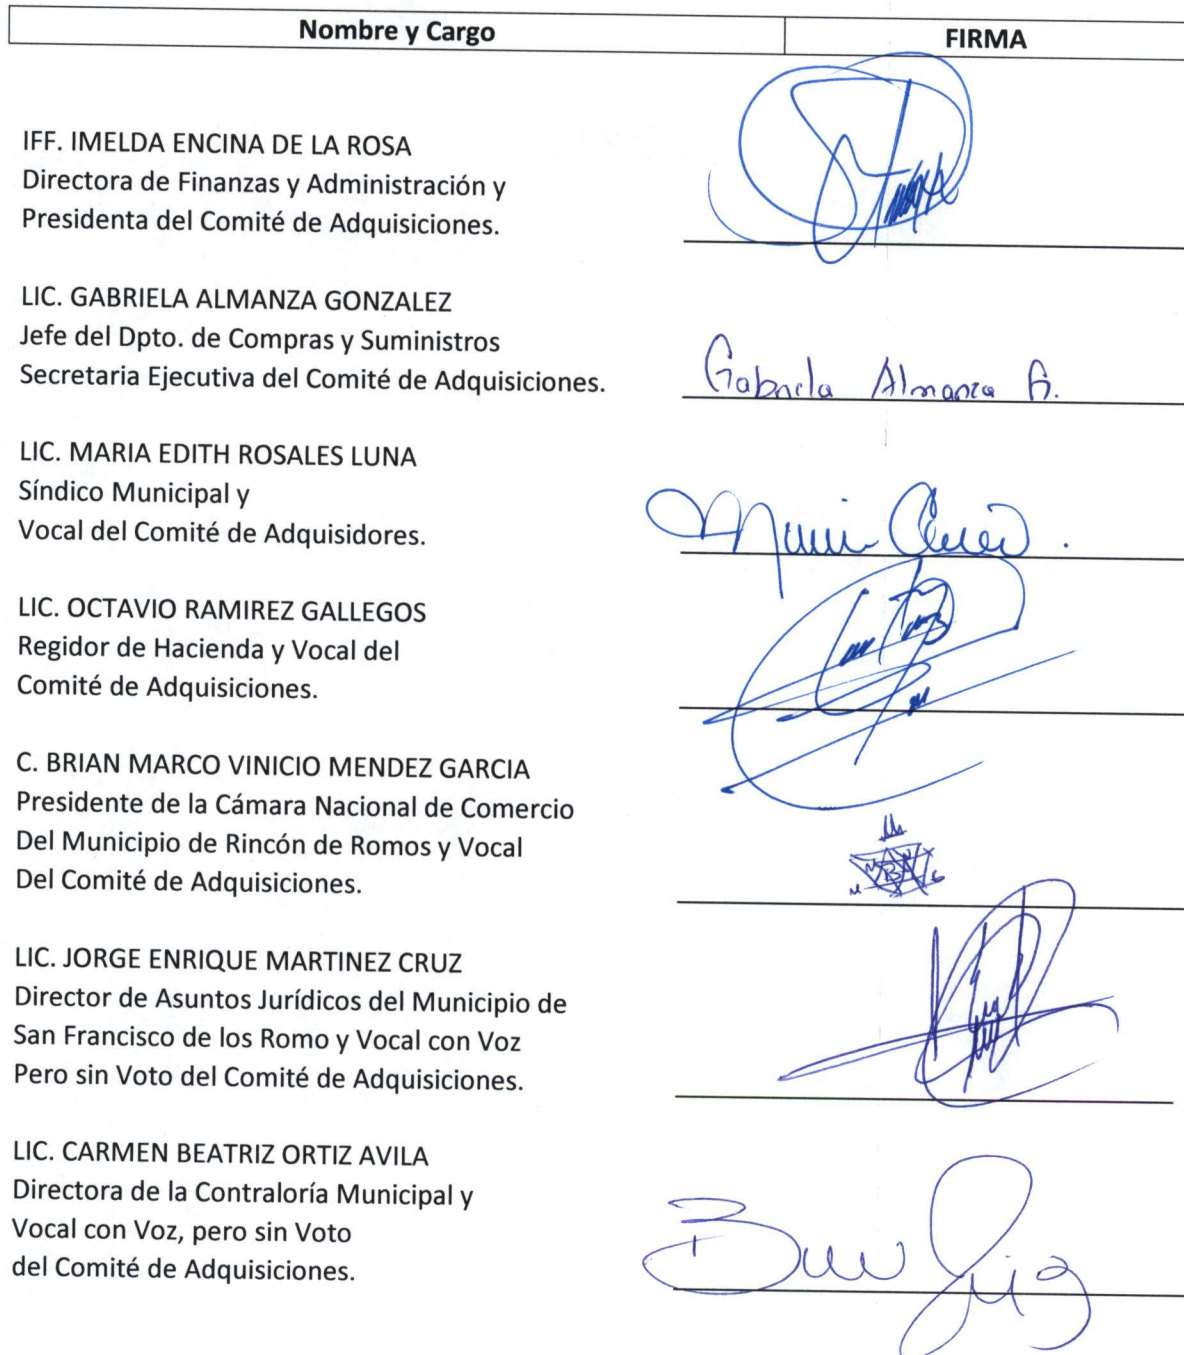 Nombre y Cargo FIRMA
IFF. IMELDA ENCINA DE LA ROSA
Directora de Finanzas y Administración y
Presidenta del Comité de Adquisiciones.
LIC. GABRIELA ALMANZA GONZALEZ
Jefe del Dpto. de Compras y Suministros
Secretaria Ejecutiva del Comité de Adquisiciones.
Gabriela Almanza G.
LIC. MARIA EDITH ROSALES LUNA
Síndico Municipal y
Vocal del Comité de Adquisidores.
LIC. OCTAVIO RAMIREZ GALLEGOS
Regidor de Hacienda y Vocal del
Comité de Adquisiciones.
C. BRIAN MARCO VINICIO MENDEZ GARCIA
Presidente de la Cámara Nacional de Comercio
Del Municipio de Rincón de Romos y Vocal
Del Comité de Adquisiciones.
LIC. JORGE ENRIQUE MARTINEZ CRUZ
Director de Asuntos Jurídicos del Municipio de
San Francisco de los Romo y Vocal con Voz
Pero sin Voto del Comité de Adquisiciones.
LIC. CARMEN BEATRIZ ORTIZ AVILA
Directora de la Contraloría Municipal y
Vocal con Voz, pero sin Voto
del Comité de Adquisiciones.